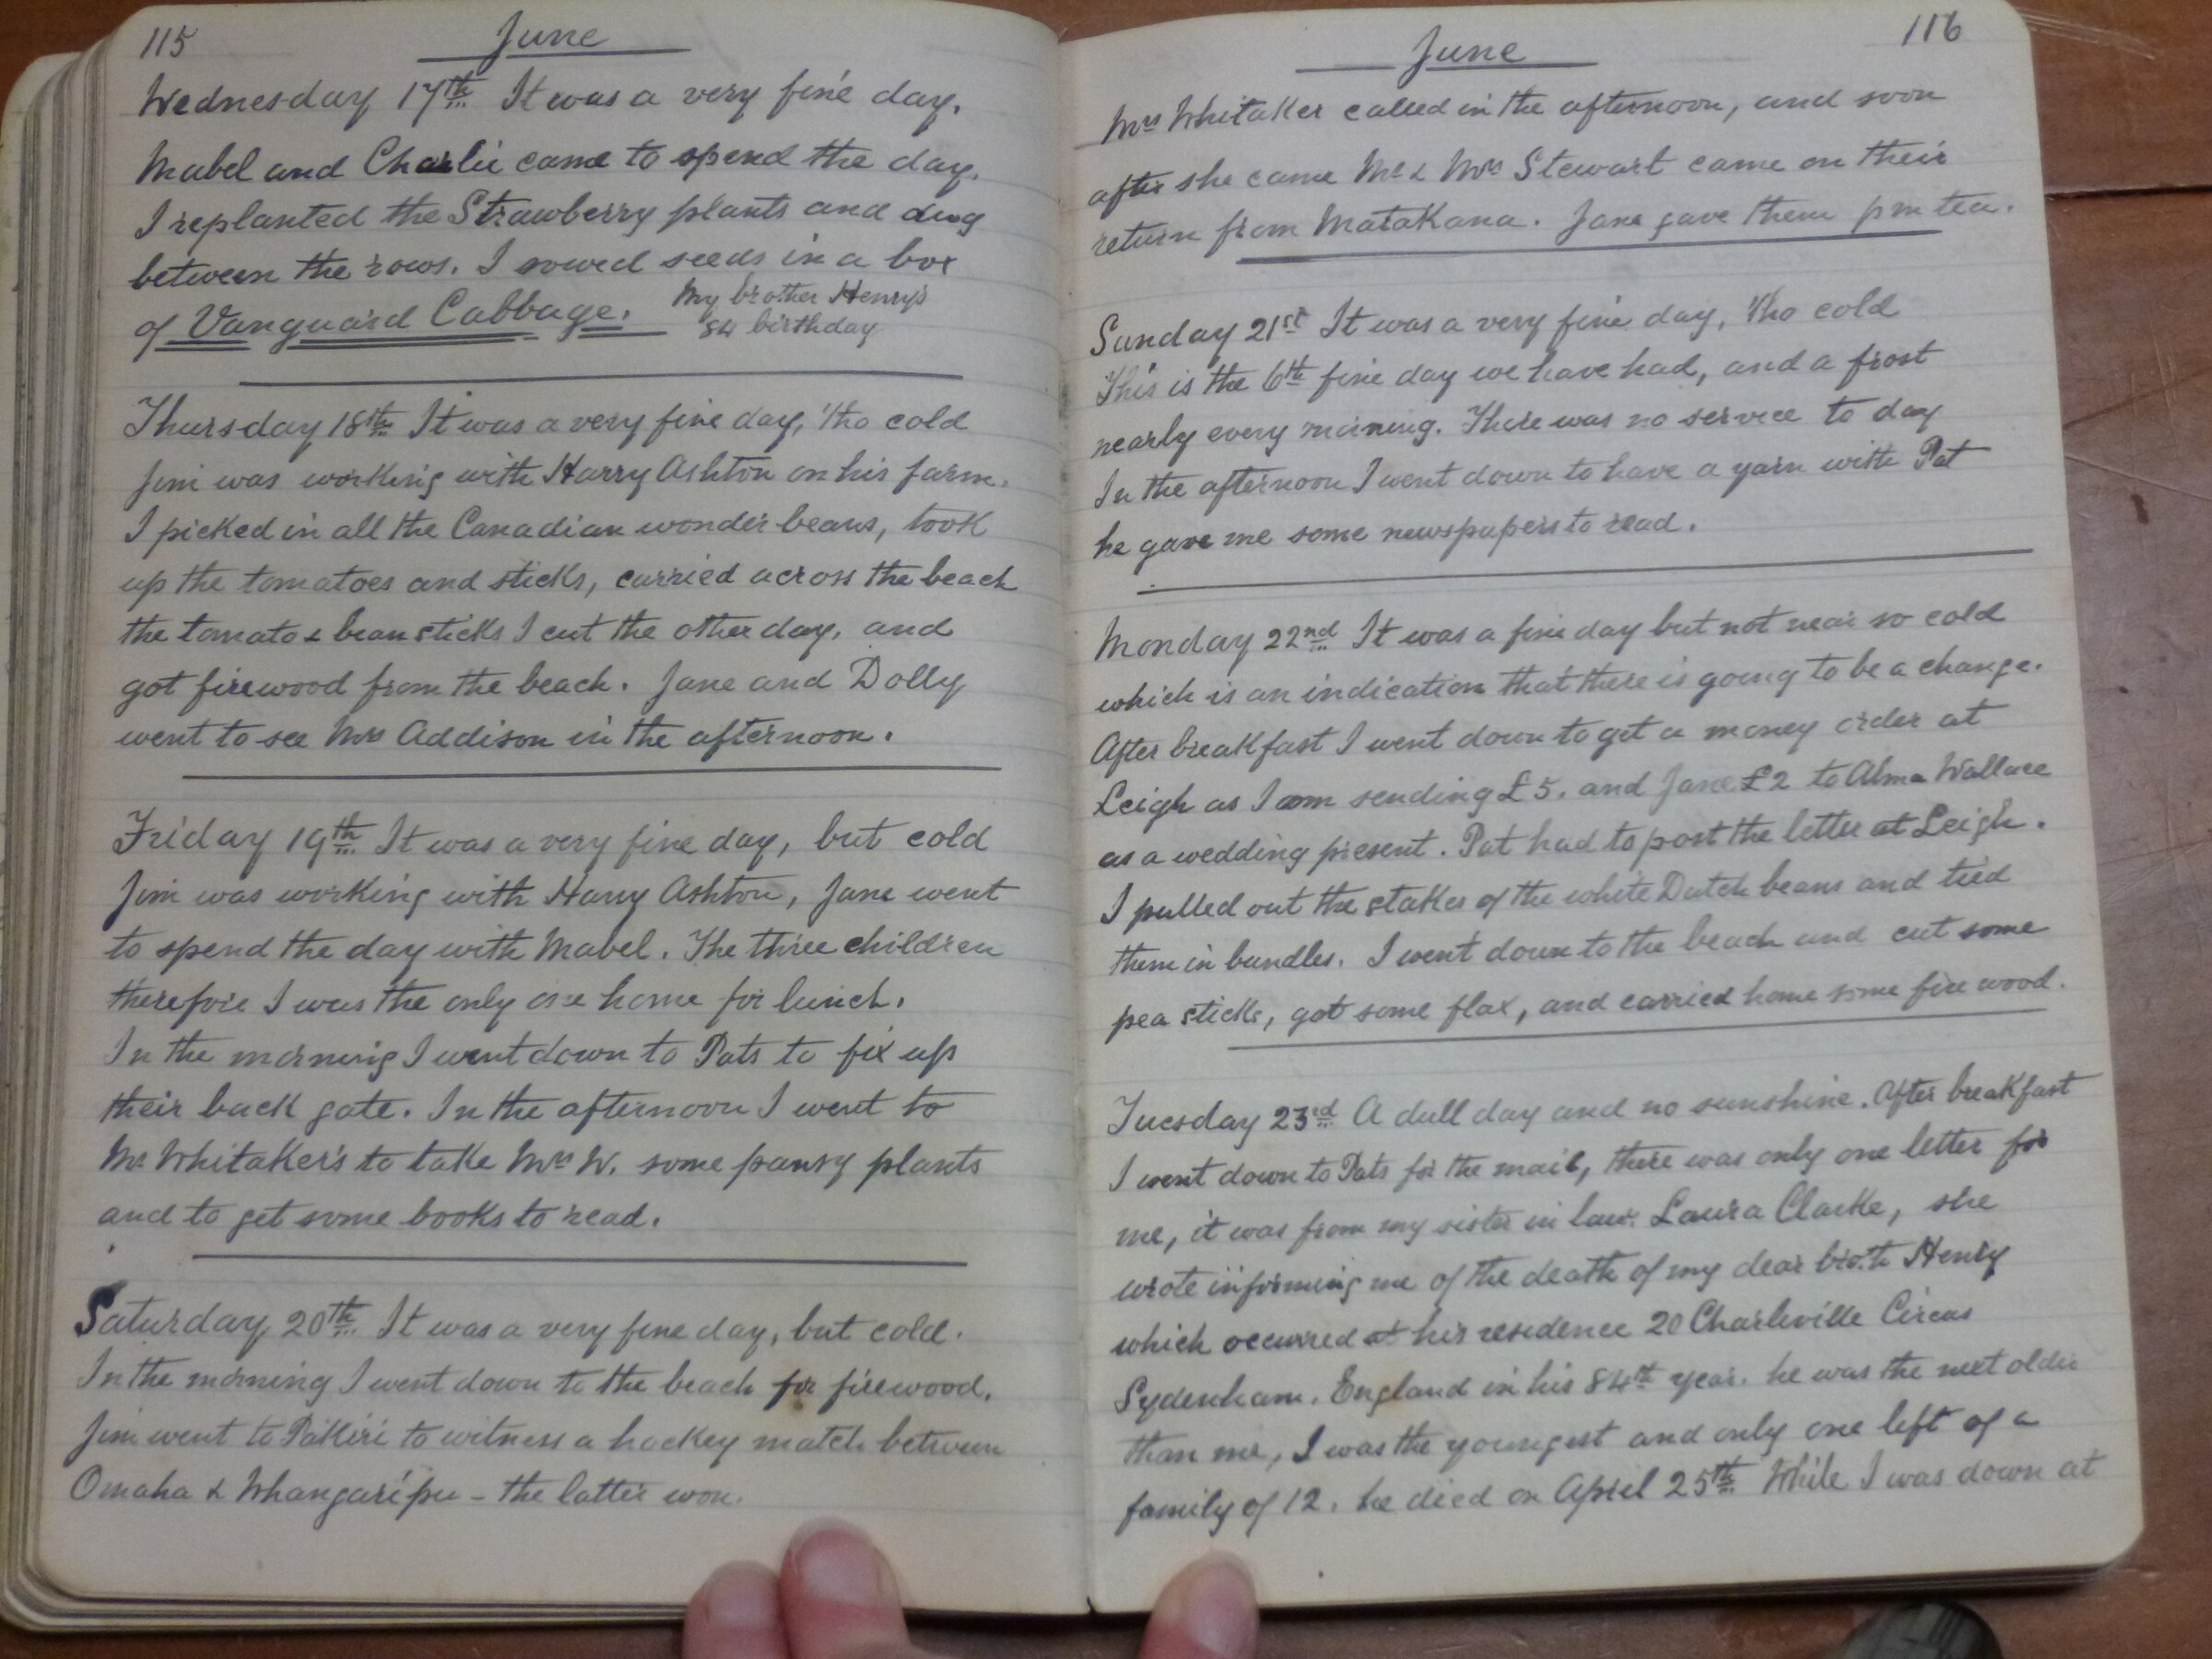 115
June
Wednesday 17th It was a very fine day.
Mabel and Charlie came to spend the day.
I replanted the Strawberry plants and dug
between the rows. I sowed seeds in a box
of Vanguard Cabbage. My brother Henry's
84 birthday
Thursday 18th It was a very fine day, 'tho cold
Jim was working with Harry Ashton on his farm.
I picked in all the Canadian wonder beans, took
up the tomatoes and sticks, carried across the beach
the tomato & bean sticks I cut the other day, and
got firewood from the beach. Jane and Dolly
went to see Mrs Addison in the afternoon.
Friday 19th It was a very fine day, but cold
Jim was working with Harry Ashton, Jane went
to spend the day with Mabel. The three children
therefore I was the only one home for lunch.
In the morning I went down to Pats to fix up
their back gate. In the afternoon I went to
Mr Whitaker's to take Mrs W. some pansy plants
and to get some books to read.
Saturday 20th It was a very fine day, but cold.
In the morning I went down to the beach for firewood.
Jim went to Pakiri to witness a hockey match between
Omaha & Whangaripu - the latter won.
116
June
Mrs Whitaker called in the afternoon, and soon
after she came Mr & Mrs Stewart came on their
return from Matakana. Jane gave them pm tea.
Sunday 21st It was a very fine day, 'tho cold
This is the 6th fine day we have had, and a frost
nearly every morning. There was no service to day
In the afternoon I went down to have a yarn with Pat
he gave me some newspapers to read.
Monday 22nd It was a fine day but not near so cold
which is an indication that there is going to be a change.
After breakfast I went down to get a money order at
Leigh as I am sending £5. and Jane £2 to Alma Wallace
as a wedding present. Pat had to post the letter at Leigh.
I pulled out the stakes of the white Dutch beans and tied
them in bundles. I went down to the beach and cut some
pea sticks, got some flax, and carried home some fire wood.
Tuesday 23rd A dull day and no sunshine. After breakfast
I went down to Pats for the mail, there was only one letter for
me, it was from my sister in law. Laura Clarke, she
wrote informing me of the death of my dear broth Henry
which occurred at his residence 20 Charleville Circus
Sydenham. England in his 84th year. he was the next older
than me, I was the youngest and only one left of a
family of 12. he died on April 25th While I was down at